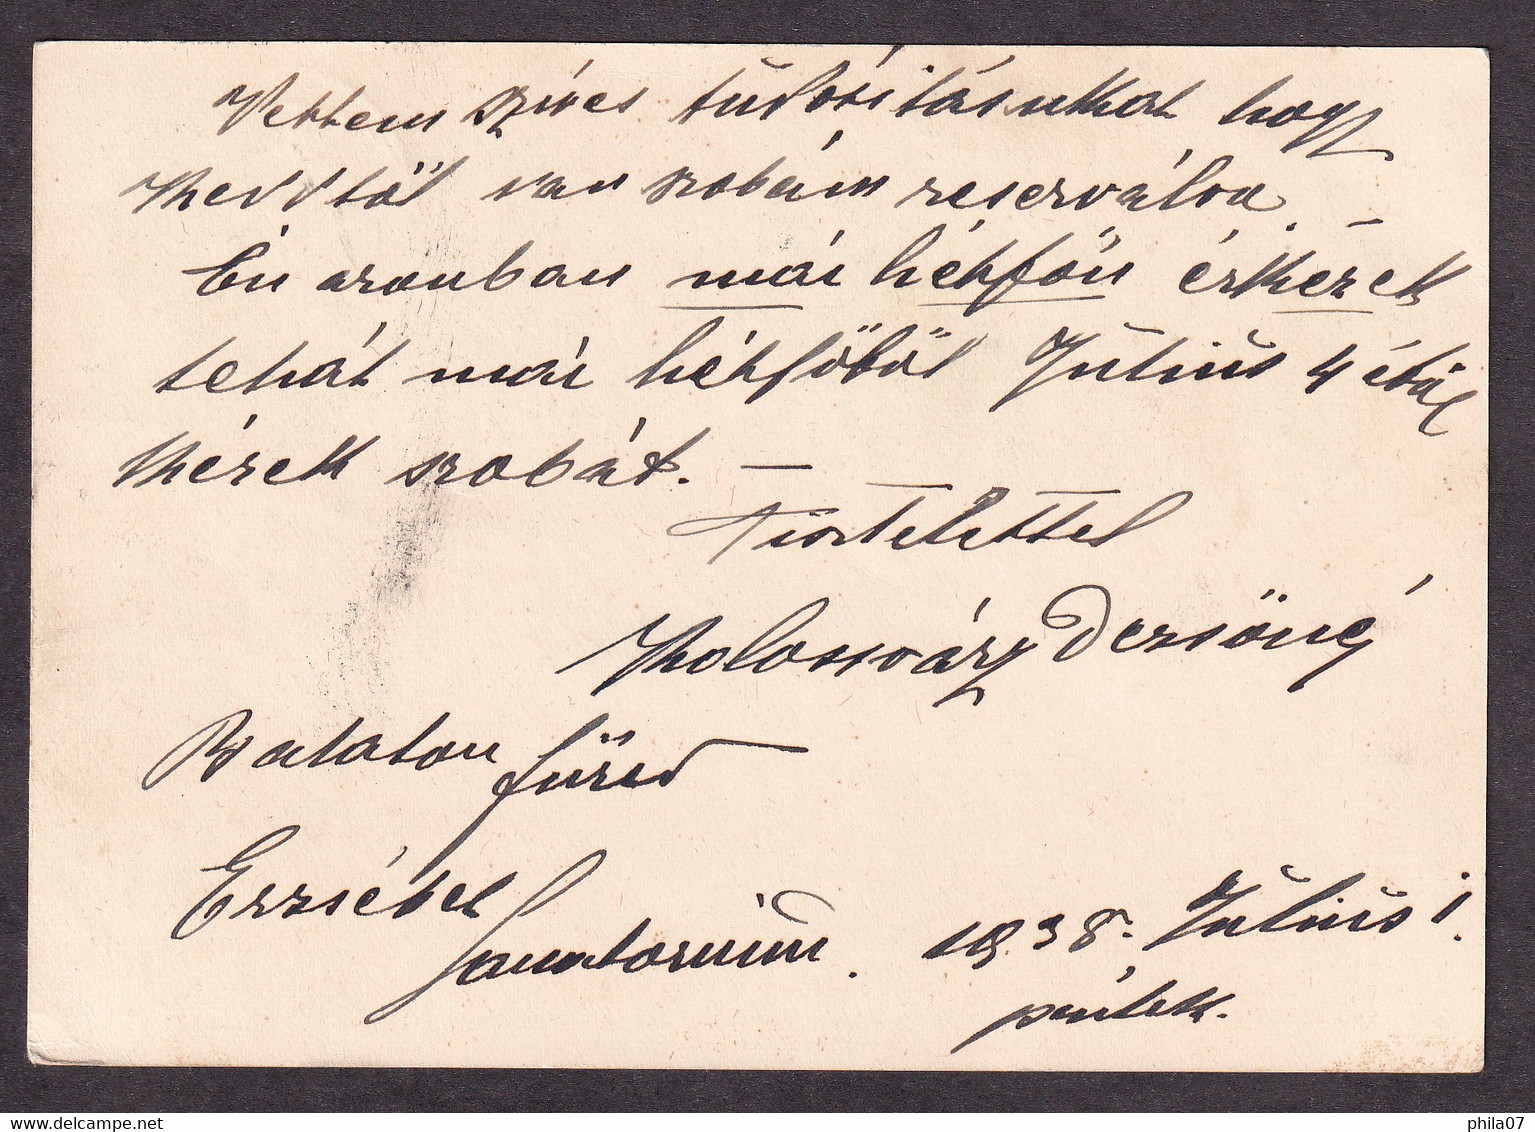 Vettem szíves tudósításukat hogy
Keddtől van szobám reserválva. –
Én azonban már hétfőn érkezek
tehát már hétfőtől Július 4 étől
kérek szobát. –
Tisztelettel
Kolossváry Dezsőné
Balaton füred
Erzsébet
Sanatorium. 1938. Július 1.
péntek.
www.delcampe.net
phila07